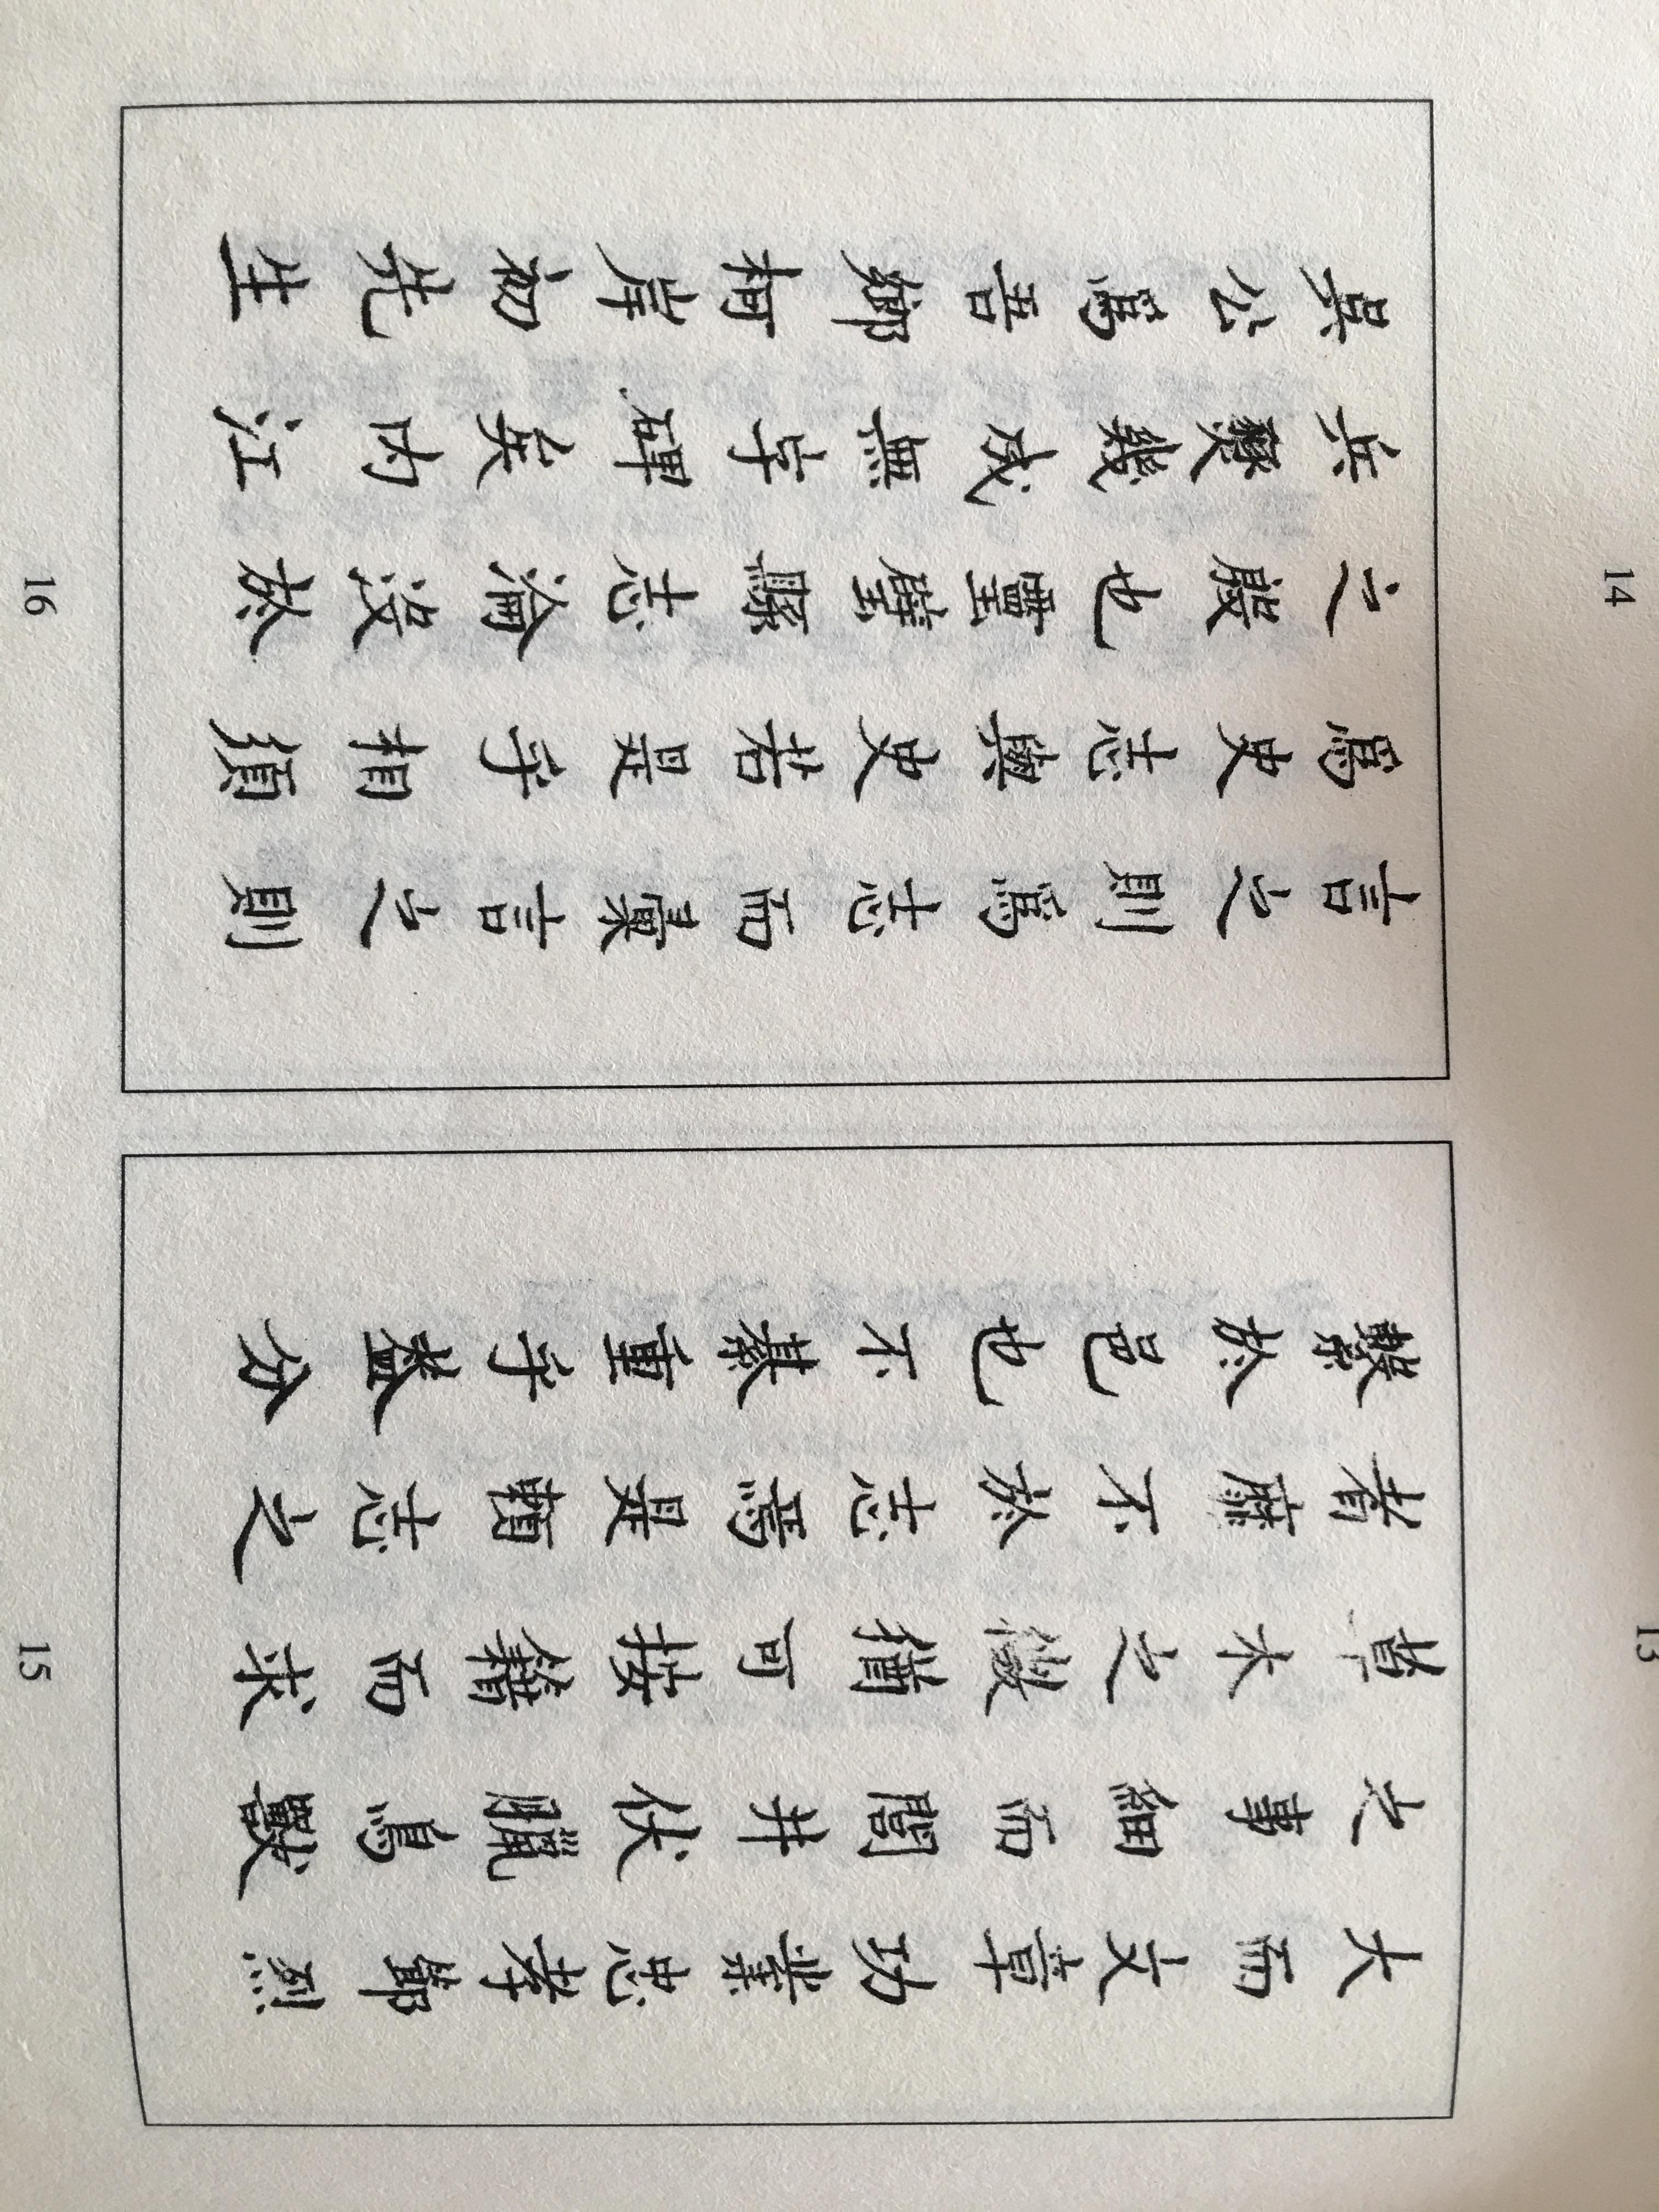 大而文章功業忠孝節烈
之事細而閭井伏臘鳥獸
草木之微備可按籍而求
者雖不於志焉是賴志之
繫於邑也不綦重乎蓋分
言之則為志而彙言之則
為史志與史若是乎相須
之殷也隆縣志淪沒於
兵燹幾成無字碑矣內江
吳公為吾鄉先生
13
14
15
16